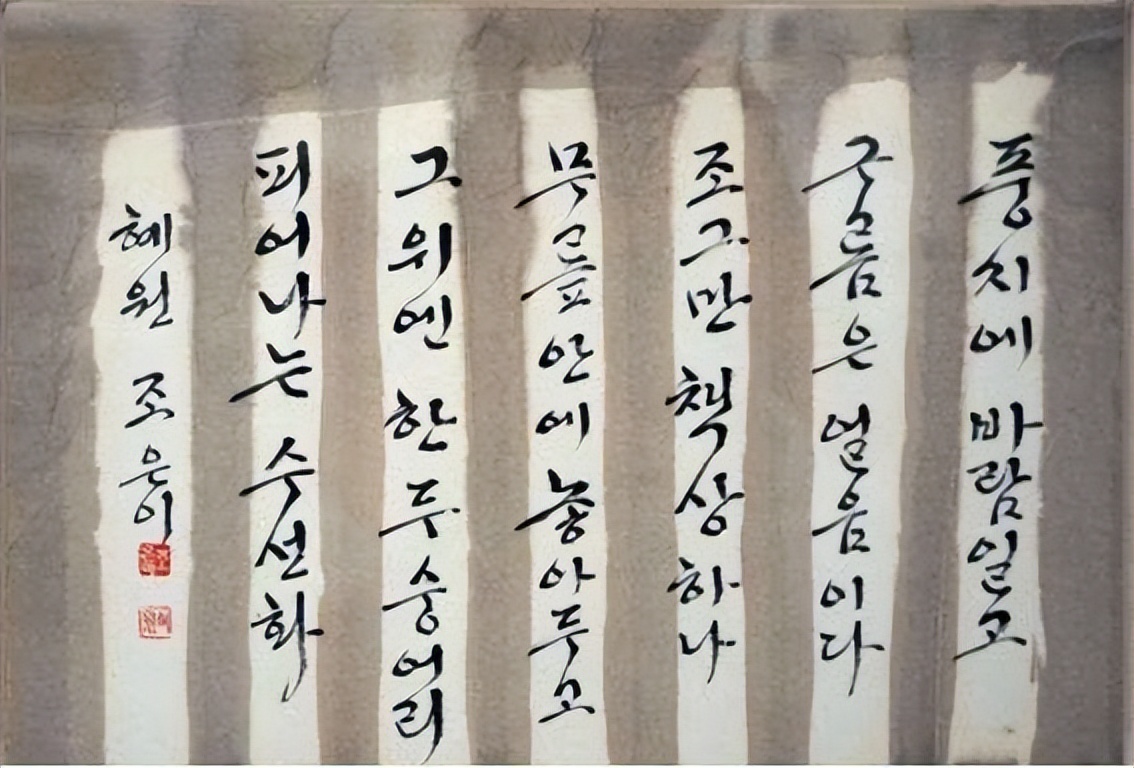 풍지에 바람일고
구름은 얼음이다
조그만 책상 하나
무릎 안에 놓아두고
그 위엔 한두 숭어리
피어나는 수선화
혜원 조은이